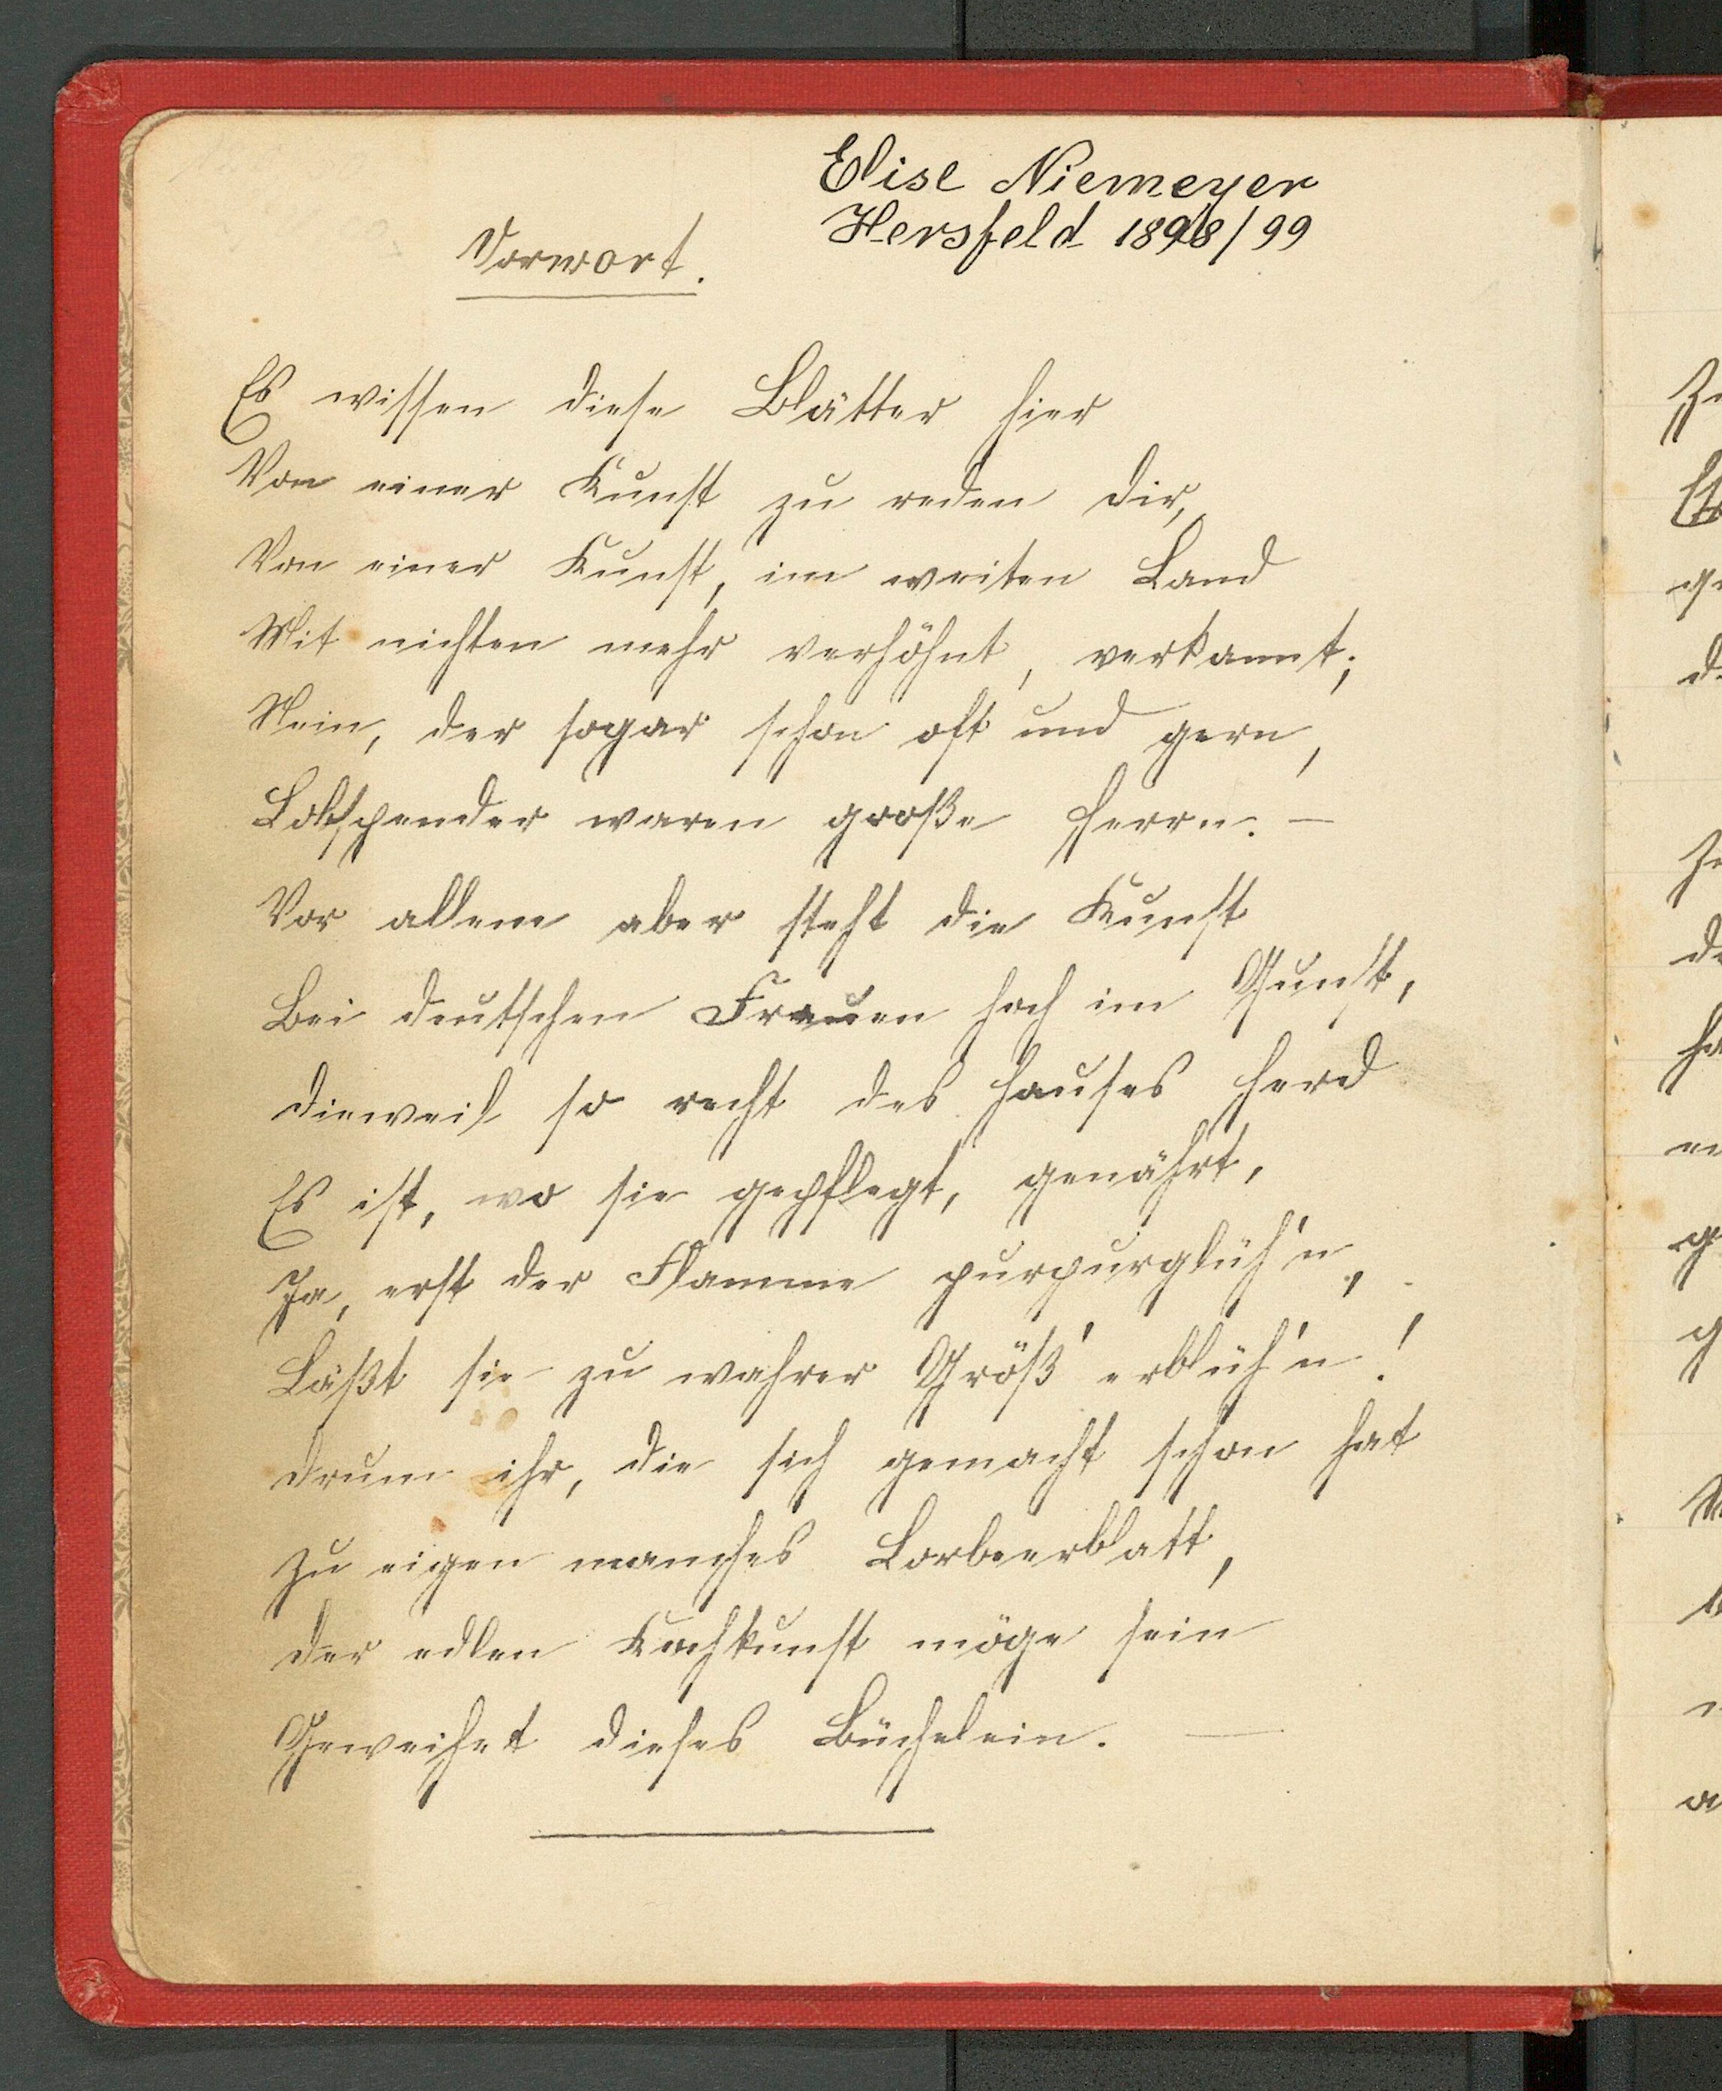 Elise Niemeyer
Hersfeld 1898/99
Vorwort.
Es wissen diese Blätter hier
Von einer Kunst zu reden dir,
Von einer Kunst, im weiten Land
Mit nichten mehr verhöhnt, verkannt;
Nein, der sogar schon oft und gern,
Lobspender waren große Herrn. —
Vor allem aber steht die Kunst
Bei deutschen Frauen hoch im Gunst,
dieweil so recht des Hauses Herd
Es ist, wo sie gepflegt, genährt,
Ja, erst der Flamme purpurglüh'n,
Läßt sie zu wahrer Größ' erblüh'n!
drum ihr, die sich gemacht schon hat
Zu eigen manches Lorbeerblatt,
der edlen Kochkunst möge sein
Geweihet dieses Büchelein. —